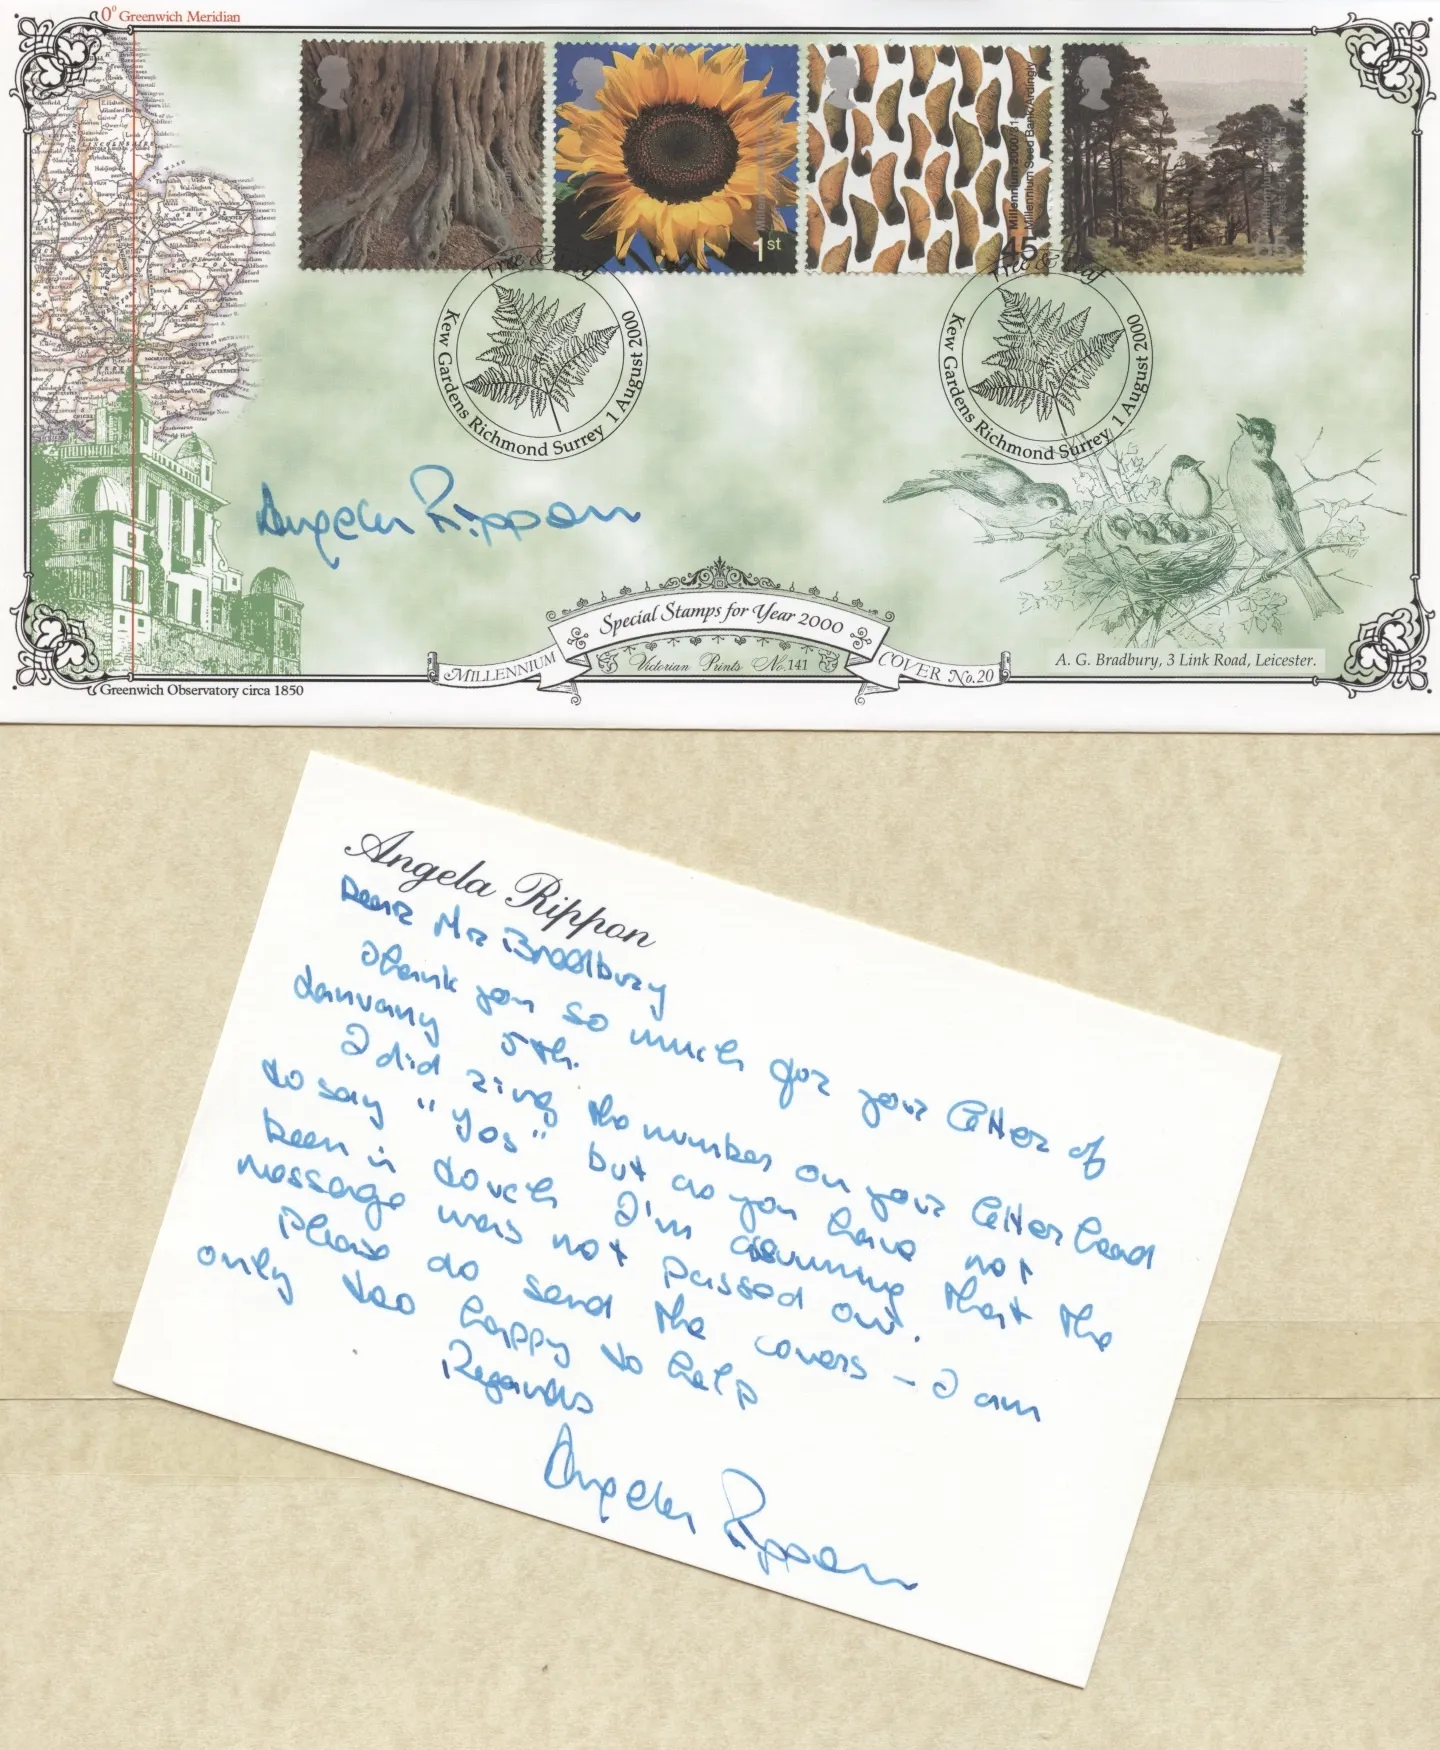 0° Greenwich Meridian
1st
Millennium 2000/31
Millennium Seed Bank/Ardingly
45
Tree & Leaf
Kew Gardens Richmond Surrey 1 August 2000
Tree & Leaf
Kew Gardens Richmond Surrey 1 August 2000
Angela Rippon
Special Stamps for Year 2000
MILLENNIUM
Victorian Prints No.141
COVER No.20
A. G. Bradbury, 3 Link Road, Leicester.
Greenwich Observatory circa 1850
Angela Rippon
Dear Mr Bradbury
Thank you so much for your letter of
January 5th.
I did ring the number on your letter head
to say "Yes" but as you have not
been in touch I'm assuming that the
message was not passed on.
Please do send the covers - I am
only too happy to help
Regards
Angela Rippon